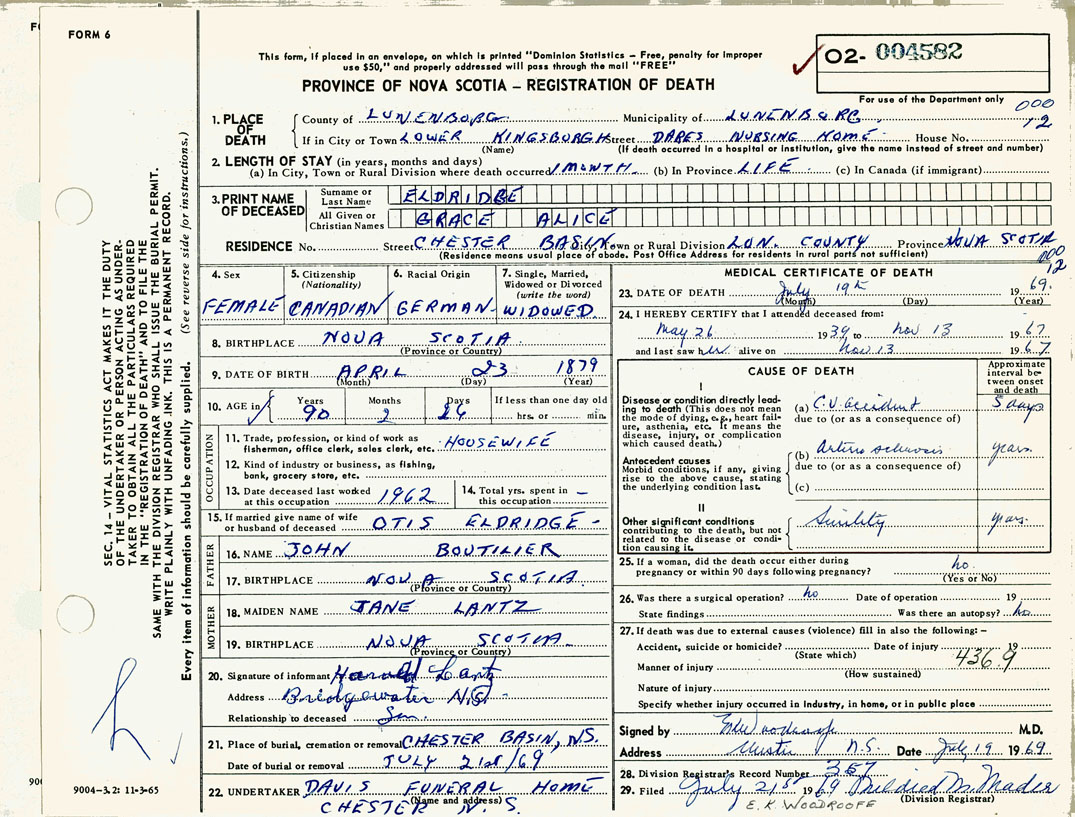 FORM 6
This form, if placed in an envelope, on which is printed "Dominion Statistics – Free, penalty for improper
use $50," and properly addressed will pass through the mail "FREE"
02- 004582
For use of the Department only
PROVINCE OF NOVA SCOTIA – REGISTRATION OF DEATH
000
12
1. PLACE OF DEATH
County of LUNENBURG Municipality of LUNENBURG
If in City or Town LOWER KINGSBURGH Street DARES NURSING HOME House No.
(Name) (If death occurred in a hospital or institution, give the name instead of street and number)
2. LENGTH OF STAY (in years, months and days)
(a) In City, Town or Rural Division where death occurred 1 MONTH (b) In Province LIFE (c) In Canada (if immigrant)
3. PRINT NAME OF DECEASED
Surname or Last Name ELDRIDGE
All Given or Christian Names GRACE ALICE
RESIDENCE No. Street CHESTER BASIN City, Town or Rural Division LUN. COUNTY Province NOVA SCOTIA
(Residence means usual place of abode. Post Office Address for residents in rural parts not sufficient)
000
12
4. Sex FEMALE
5. Citizenship (Nationality) CANADIAN
6. Racial Origin GERMAN
7. Single, Married, Widowed or Divorced (write the word) WIDOWED
8. BIRTHPLACE NOVA SCOTIA
(Province or Country)
9. DATE OF BIRTH APRIL 23 1879
(Month) (Day) (Year)
10. AGE in Years 90 Months 2 Days 26 If less than one day old hrs. or min.
OCCUPATION
11. Trade, profession, or kind of work as fisherman, office clerk, sales clerk, etc. HOUSEWIFE
12. Kind of industry or business, as fishing, bank, grocery store, etc.
13. Date deceased last worked at this occupation 1962
14. Total yrs. spent in this occupation –
15. If married give name of wife or husband of deceased OTIS ELDRIDGE –
FATHER
16. NAME JOHN BOUTILIER
17. BIRTHPLACE NOVA SCOTIA
(Province or Country)
MOTHER
18. MAIDEN NAME JANE LANTZ
19. BIRTHPLACE NOVA SCOTIA
(Province or Country)
20. Signature of informant Harold Lantz
Address Bridgewater N.S. –
Relationship to deceased Son.
21. Place of burial, cremation or removal CHESTER BASIN, N.S.
Date of burial or removal JULY 21st/69
22. UNDERTAKER DAVIS FUNERAL HOME
(Name and address)
CHESTER N.S.
MEDICAL CERTIFICATE OF DEATH
23. DATE OF DEATH July 19th 1969.
(Month) (Day) (Year)
24. I HEREBY CERTIFY that I attended deceased from:
May 26 1939 to Nov 13 1967
and last saw her alive on Nov 13 1967
CAUSE OF DEATH
Approximate interval between onset and death
I
Disease or condition directly leading to death (This does not mean the mode of dying, e.g., heart failure, asthenia, etc. It means the disease, injury, or complication which caused death.)
(a) C.V. accident 5 days
due to (or as a consequence of)
Antecedent causes
Morbid conditions, if any, giving rise to the above cause, stating the underlying condition last.
(b) Arterio sclerosis years
due to (or as a consequence of)
(c)
II
Other significant conditions
contributing to the death, but not related to the disease or condition causing it.
Senility years.
25. If a woman, did the death occur either during pregnancy or within 90 days following pregnancy? no
(Yes or No)
26. Was there a surgical operation? no Date of operation 19
State findings Was there an autopsy? no
27. If death was due to external causes (violence) fill in also the following: –
Accident, suicide or homicide? Date of injury 19
(State which)
436.9
Manner of injury
(How sustained)
Nature of injury
Specify whether injury occurred in Industry, in home, or in public place
Signed by EKWoodroofe M.D.
Address Chester N.S. Date July 19 1969
28. Division Registrar's Record Number 367
29. Filed July 21st 1969 Mildred M. Mader
(Division Registrar)
E. K. WOODROOFE
SEC. 14 – VITAL STATISTICS ACT MAKES IT THE DUTY
OF THE UNDERTAKER OR PERSON ACTING AS UNDER-
TAKER TO OBTAIN ALL THE PARTICULARS REQUIRED
IN THE "REGISTRATION OF DEATH" AND TO FILE THE
SAME WITH THE DIVISION REGISTRAR WHO SHALL ISSUE THE BURIAL PERMIT.
WRITE PLAINLY WITH UNFADING INK. THIS IS A PERMANENT RECORD.
Every item of information should be carefully supplied. (See reverse side for instructions.)
9004-3.2: 11-3-65
900